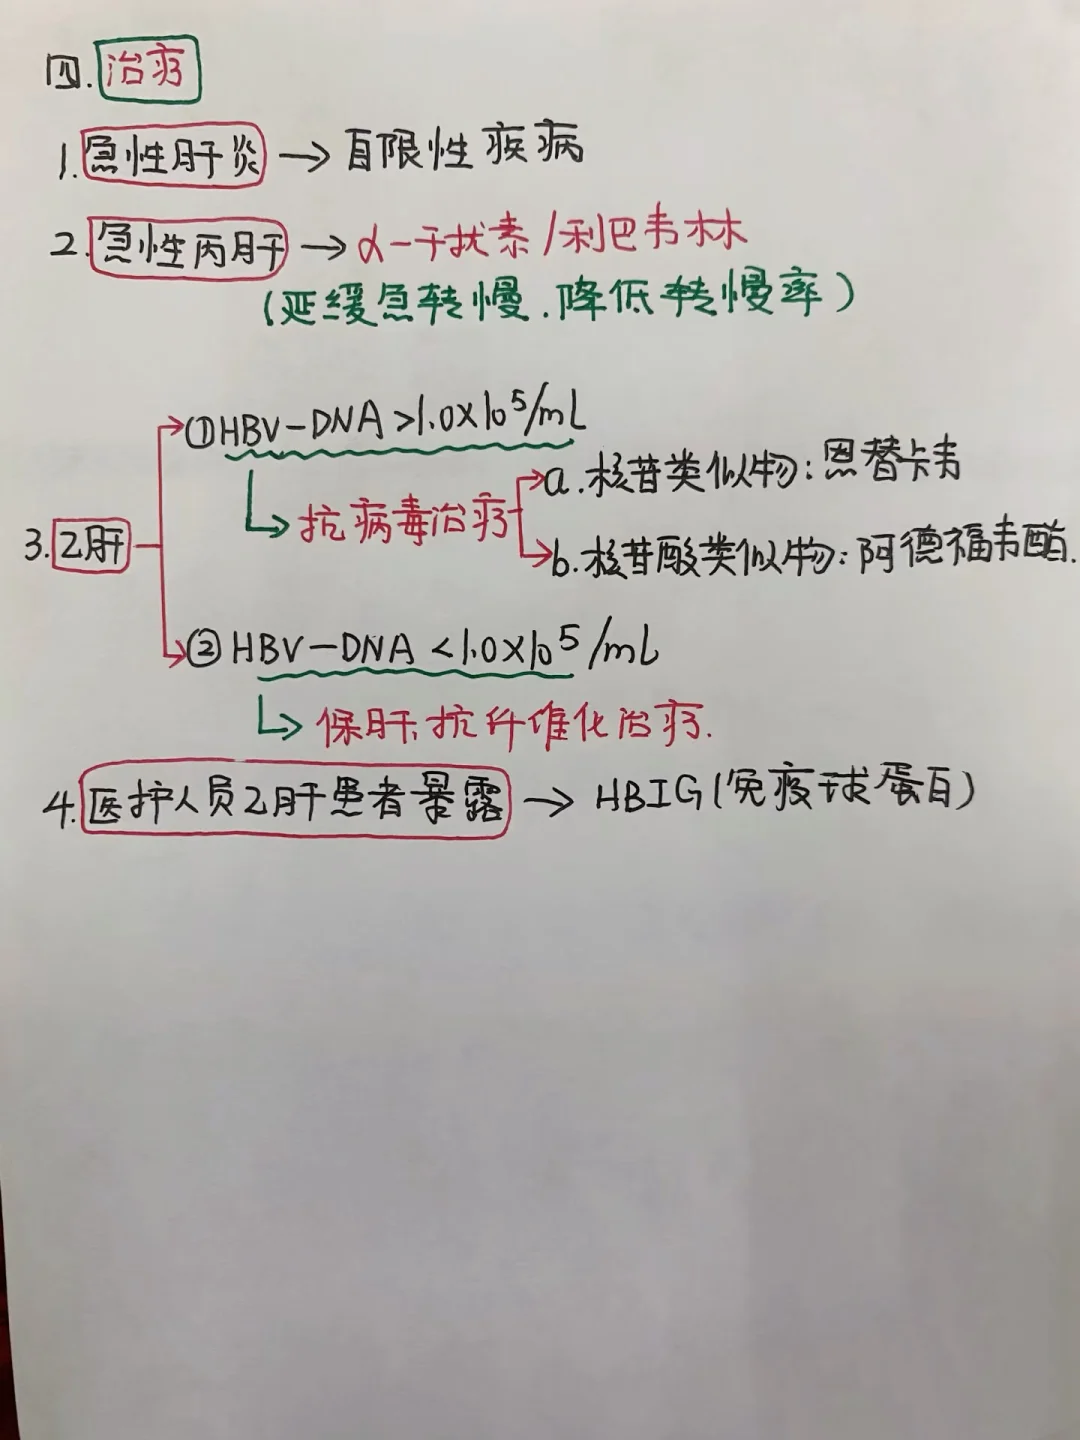 四.治疗
1.急性肝炎→自限性疾病
2.急性丙肝→α-干扰素/利巴韦林
(延缓急转慢.降低转慢率)
①HBV-DNA>1.0×10⁵/mL
a.核苷类似物:恩替卡韦
抗病毒治疗
3.乙肝
b.核苷酸类似物:阿德福韦酯.
②HBV-DNA<1.0×10⁵/mL
保肝、抗纤维化治疗.
4.医护人员乙肝患者暴露→HBIG(免疫球蛋白)